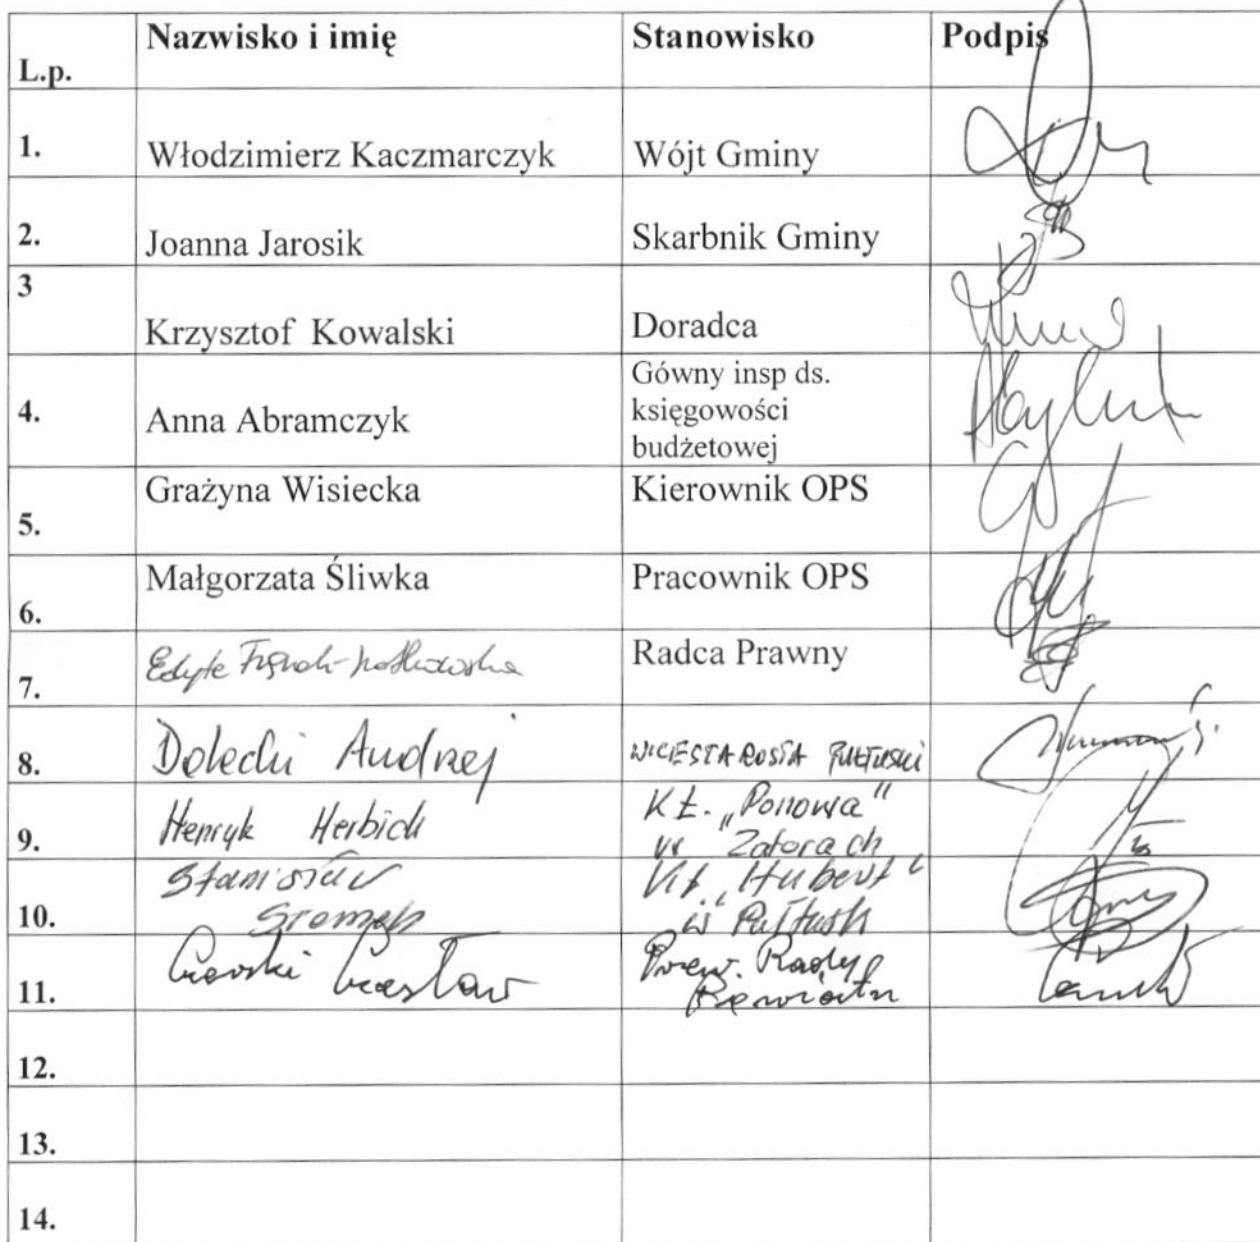 L.p. Nazwisko i imię Stanowisko Podpis
1. Włodzimierz Kaczmarczyk Wójt Gminy
2. Joanna Jarosik Skarbnik Gminy
3 Krzysztof Kowalski Doradca
4. Anna Abramczyk Gówny insp ds.
księgowości
budżetowej
5. Grażyna Wisiecka Kierownik OPS
6. Małgorzata Śliwka Pracownik OPS
7. Radca Prawny
8. Dolecki Andrzej WICESTAROSTA PUŁTUSKI
9. Henryk Herbich KŁ. „Ponowa"
w Zatorach
10. Stanisław „Hubert"
w
11. Czesław Przew. Rady
Powiatu
12.
13.
14.